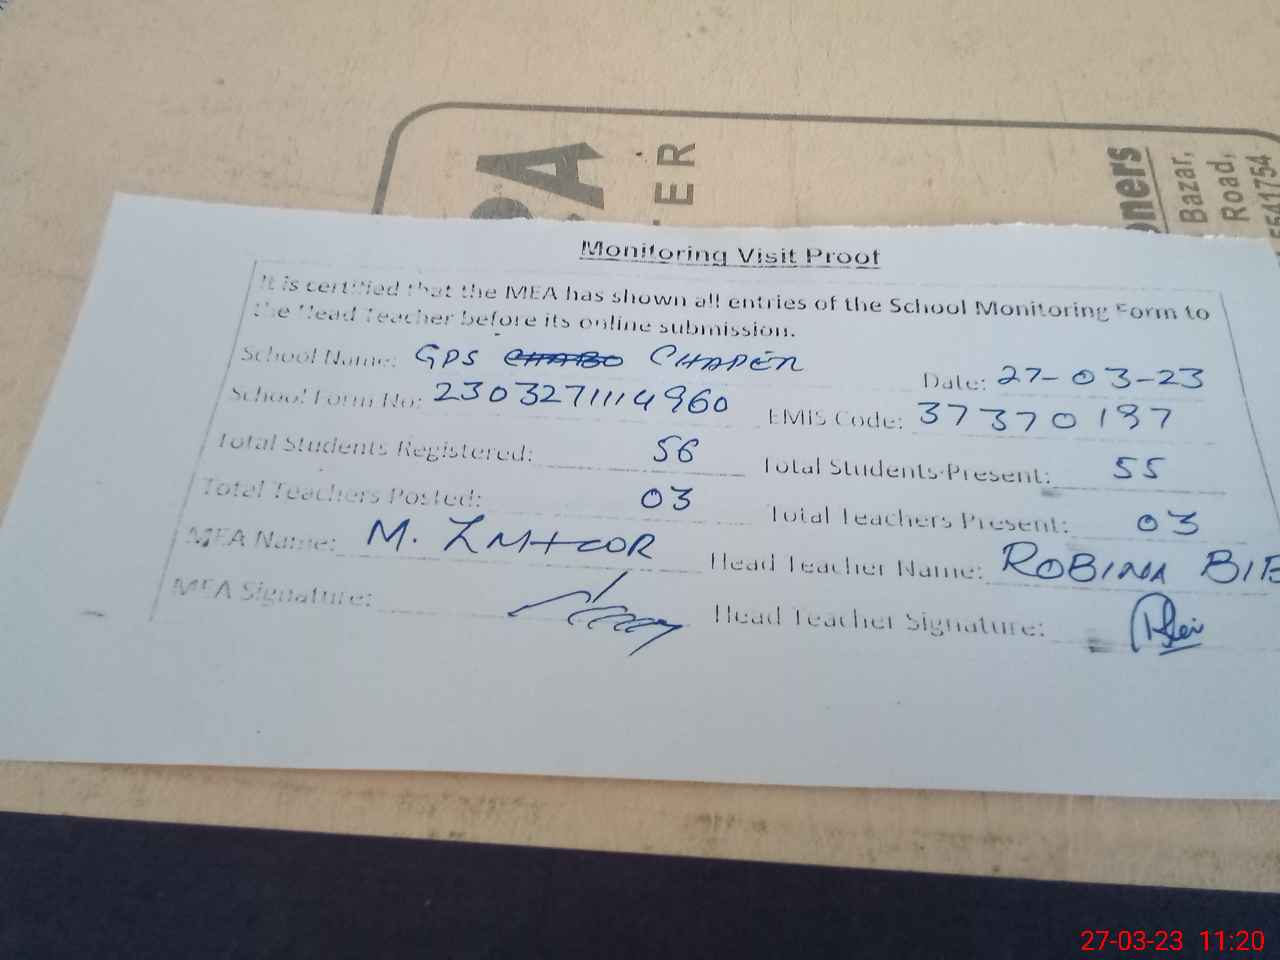 PA
TER
oners
Bazar,
Road,
5541754
Monitoring Visit Proof
It is certified that the MEA has shown all entries of the School Monitoring Form to
the Head Teacher before its online submission.
School Name: GPS CHABO CHAPER
Date: 27-03-23
School Form No: 2303271114960
EMIS Code: 37370197
Total Students Registered: 56
Total Students Present: 55
Total Teachers Posted: 03
Total Teachers Present: 03
MEA Name: M.
Head Teacher Name: ROBINA BIB
MEA Signature:
Head Teacher Signature:
27-03-23 11:20